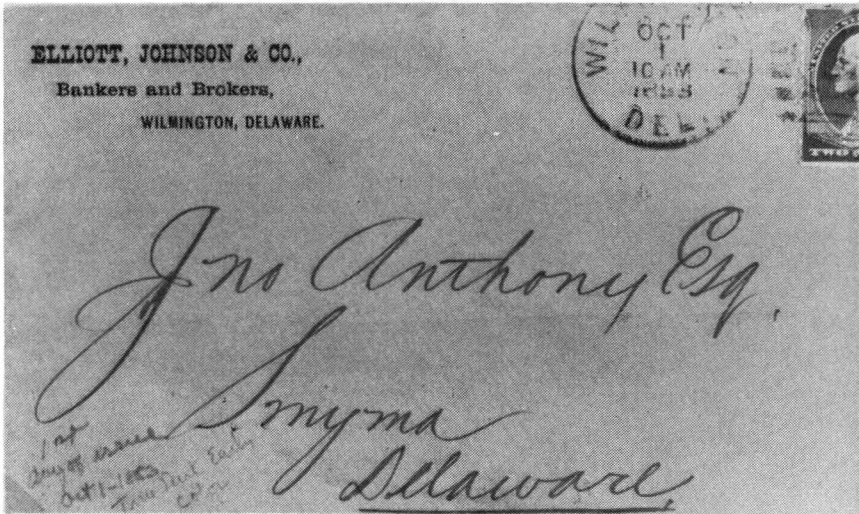 ELLIOTT, JOHNSON & CO.,
Bankers and Brokers,
WILMINGTON, DELAWARE.
WIL
OCT
1
10 AM
1883
DEL
TWO
Jno Anthony Esq.
Smyrna
Delaware.
1st
day of issue
Oct 1-1883
Two Cent Early